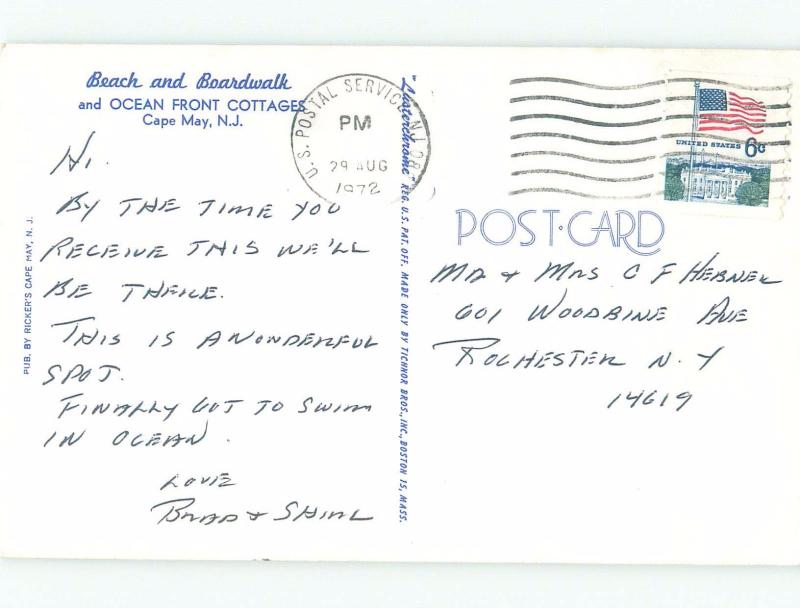 Beach and Boardwalk
and OCEAN FRONT COTTAGES
Cape May, N.J.
Hi.
BY THE TIME YOU
RECEIVE THIS WE'LL
BE THERE.
THIS IS A WONDERFUL
SPOT.
FINALLY GOT TO SWIM
IN OCEAN.
LOVE
BRAD & SHIRL
PUB. BY RICKER'S CAPE MAY, N. J.
"Luxterchrome" REG. U.S. PAT. OFF. MADE ONLY BY TICHNOR BROS., INC., BOSTON 15, MASS.
U.S. POSTAL SERVICE N.J. 08
PM
29 AUG
1972
UNITED STATES 6c
POST CARD
MR & MRS C F HEBNER
601 WOODBINE AVE
ROCHESTER N.Y
14619